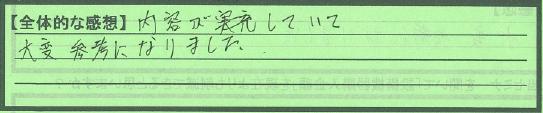 【全体的な感想】内容が充実していて
大変参考になりました。